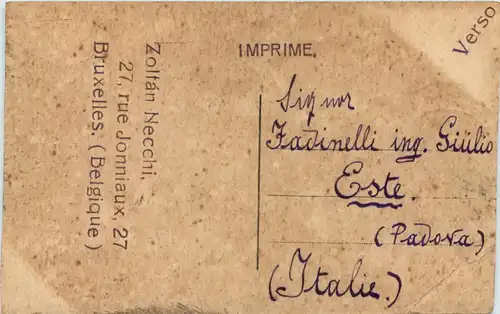 Verso
IMPRIME.
Zoltán Necchi,
27, rue Jonniaux, 27
Bruxelles. (Belgique)
Signor
Fadinelli ing. Giülio
Este.
(Padova)
(Italie.)